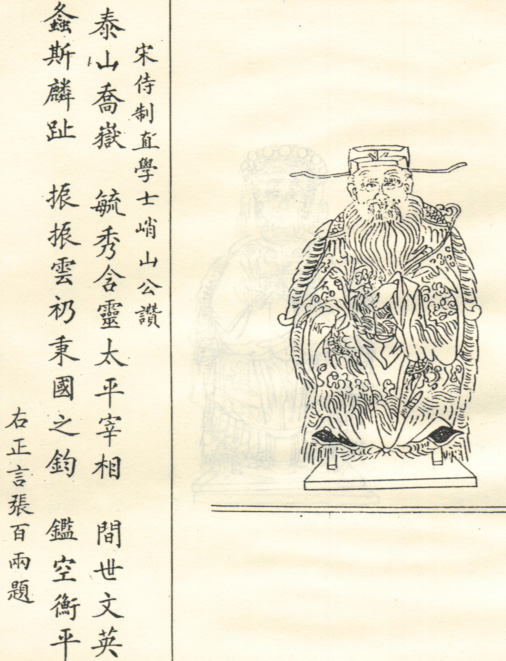 宋侍制直學士峭山公讚
泰山喬嶽 毓秀含靈太平宰相 間世文英
螽斯麟趾 振振雲礽秉國之鈞 鑑空衡平
右正言張百兩題